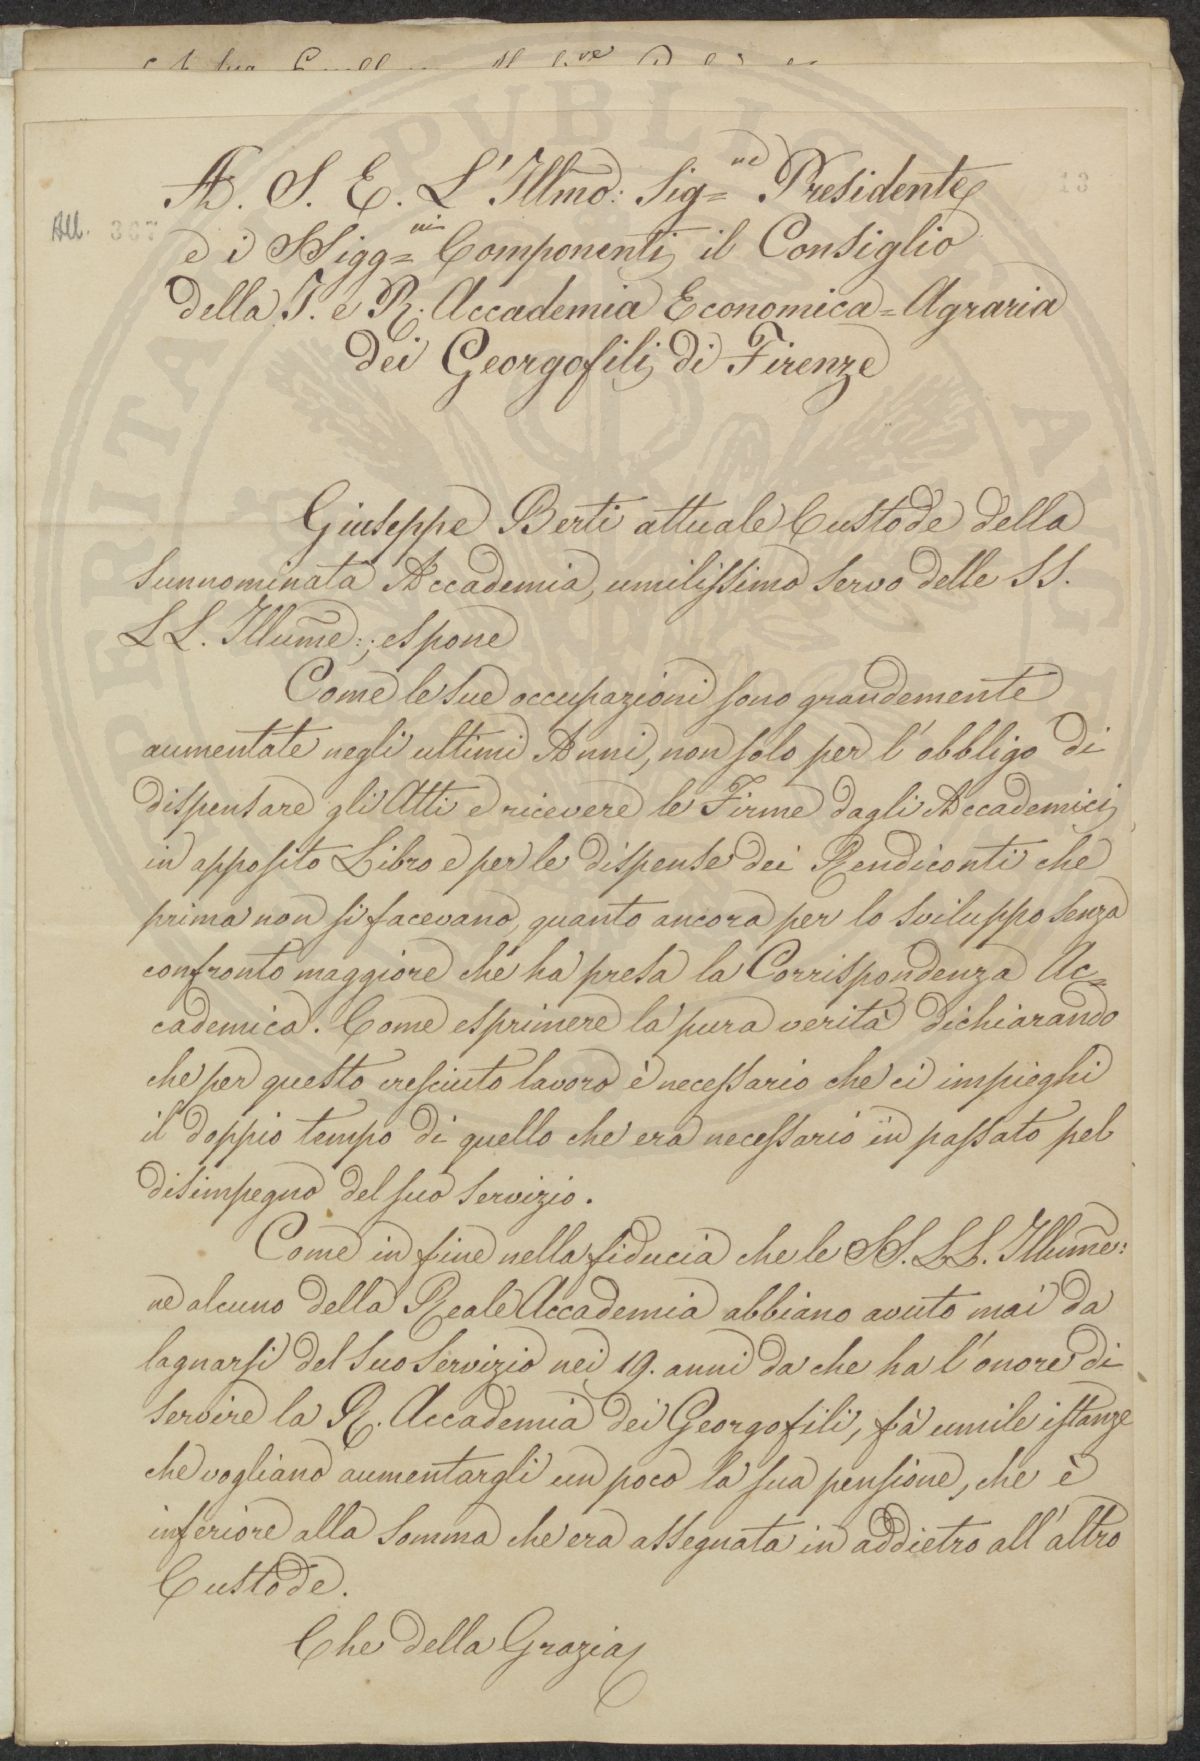 All. 367
13
A. S. E. L'Illmo: Sig=re Presidente
e i SSigg=ri Componenti il Consiglio
della I. e R. Accademia Economica=Agraria
dei Georgofili di Firenze
Giuseppe Berti attuale Custode della
Sunnominata Accademia, umilissimo servo delle SS.
LL. Illume:; espone
Come le sue occupazioni sono grandemente
aumentate negli ultimi Anni, non solo per l'obbligo di
dispensare gli Atti e ricevere le Firme dagli Accademici
in apposito Libro e per le dispense dei Rendiconti che
prima non si facevano, quanto ancora per lo sviluppo senza
confronto maggiore che ha presa la Corrispondenza Ac=
cademica. Come esprimere la pura verità dichiarando
che per questo cresciuto lavoro è necessario che ci impieghi
il doppio tempo di quello che era necessario in passato pel
disimpegno del suo servizio.
Come in fine nella fiducia che le SS. LL. Illume:
ne alcuno della Reale Accademia abbiano avuto mai da
lagnarsi del suo Servizio nei 19. anni da che ha l'onore di
servire la R. Accademia dei Georgofili, fà umile istanze
che vogliano aumentargli un poco la sua pensione, che è
inferiore alla somma che era assegnata in addietro all'altro
Custode.
Che della Grazia